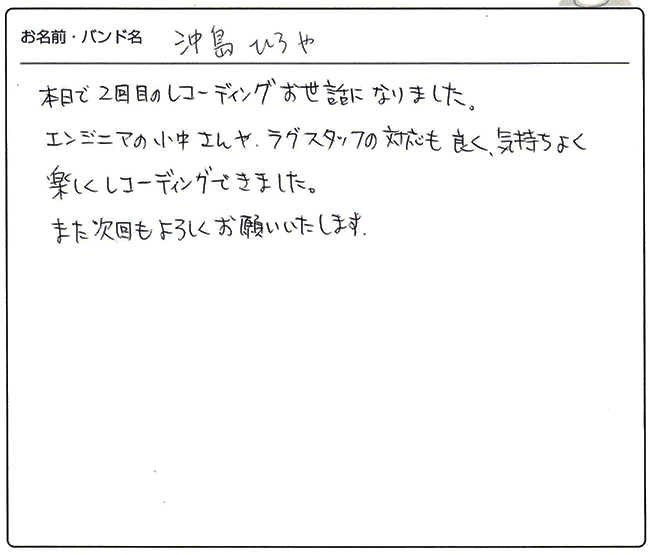 お名前・バンド名 沖島ひろや
本日で2回目のレコーディングお世話になりました。
エンジニアの小中さんや、ラグスタッフの対応も良く、気持ちよく
楽しくレコーディングできました。
また次回もよろしくお願いいたします.